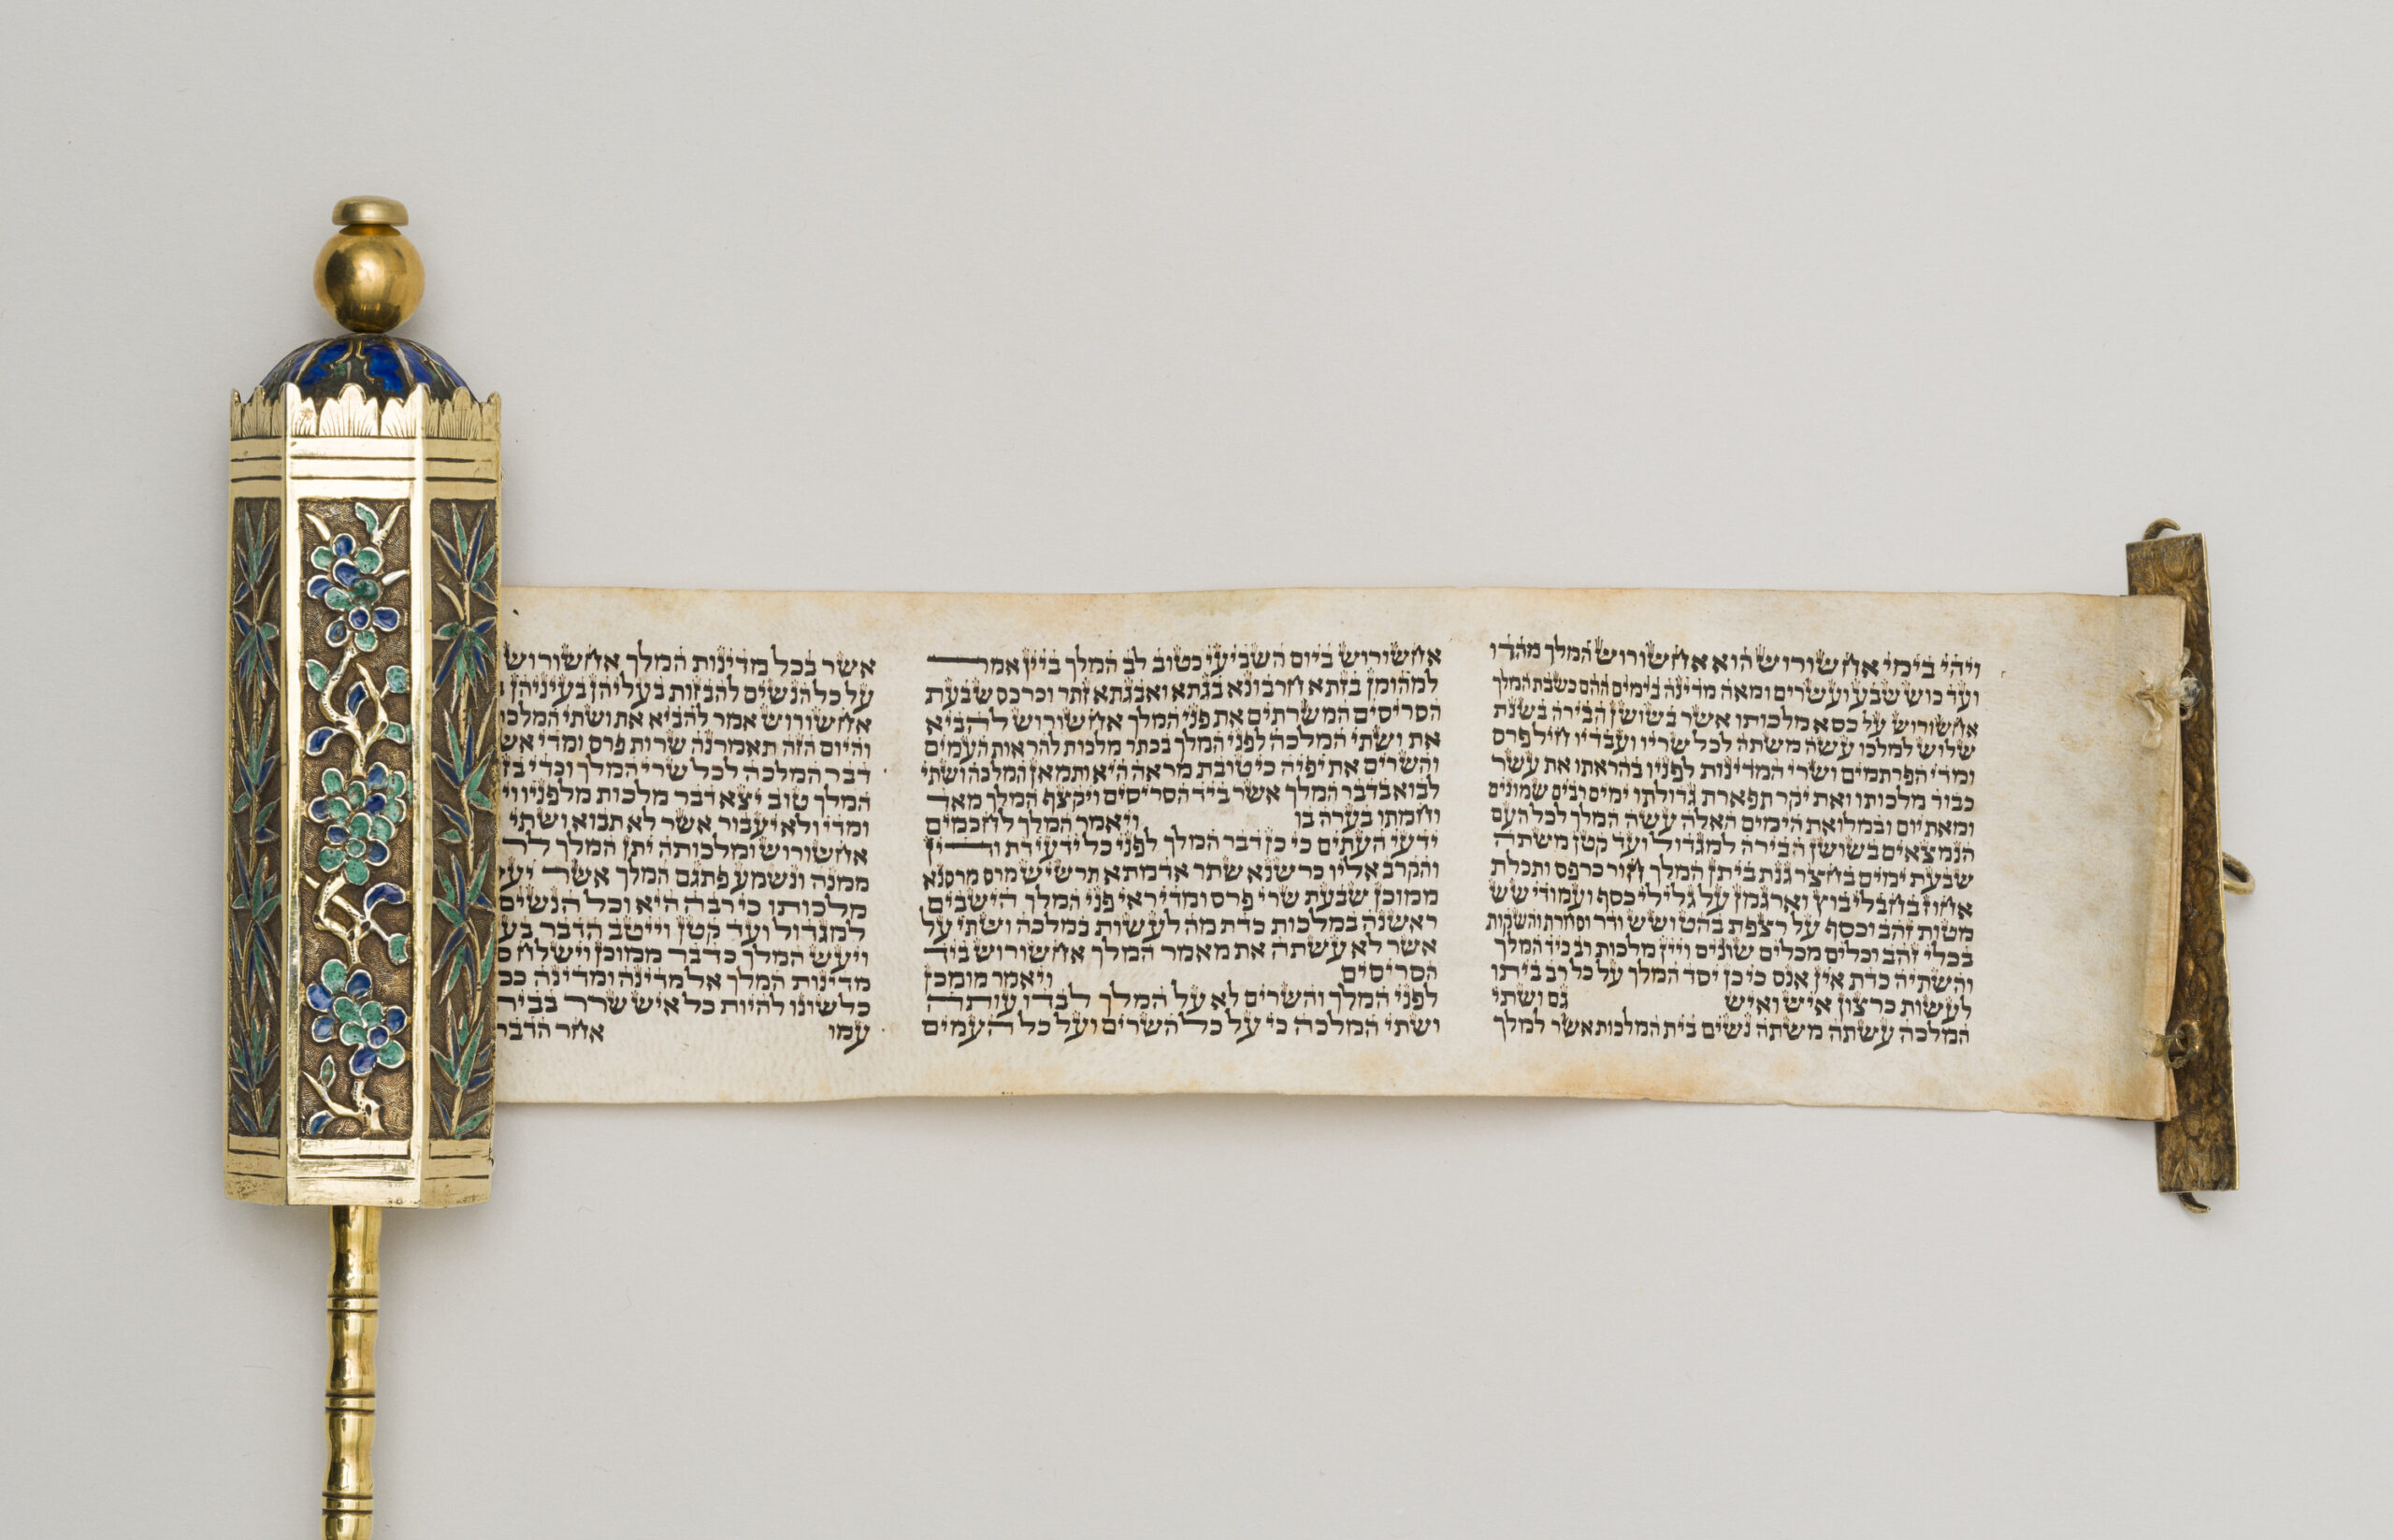 ויהי בימי אחשורוש הוא אחשורוש המלך מהדו
ועד כוש שבע ועשרים ומאה מדינה בימים ההם כשבת המלך
אחשורוש על כסא מלכותו אשר בשושן הבירה בשנת
שלוש למלכו עשה משתה לכל שריו ועבדיו חיל פרס
ומדי הפרתמים ושרי המדינות לפניו בהראתו את עשר
כבוד מלכותו ואת יקר תפארת גדולתו ימים רבים שמונים
ומאת יום ובמלואת הימים האלה עשה המלך לכל העם
הנמצאים בשושן הבירה למגדול ועד קטן משתה
שבעת ימים בחצר גנת ביתן המלך חור כרפס ותכלת
אחוז בחבלי בוץ וארגמן על גלילי כסף ועמודי שש
מטות זהב וכסף על רצפת בהט ושש ודר וסחרת והשקות
בכלי זהב וכלים מכלים שונים ויין מלכות רב כיד המלך
והשתיה כדת אין אנס כי כן יסד המלך על כל רב ביתו
לעשות כרצון איש ואיש גם ושתי
המלכה עשתה משתה נשים בית המלכות אשר למלך
אחשורוש ביום השביעי כטוב לב המלך ביין אמר
למהומן בזתא חרבונא בגתא ואבגתא זתר וכרכס שבעת
הסריסים המשרתים את פני המלך אחשורוש להביא
את ושתי המלכה לפני המלך בכתר מלכות להראות העמים
והשרים את יפיה כי טובת מראה היא ותמאן המלכה ושתי
לבוא בדבר המלך אשר ביד הסריסים ויקצף המלך מאד
וחמתו בערה בו ויאמר המלך לחכמים
ידעי העתים כי כן דבר המלך לפני כל ידעי דת ודין
והקרב אליו כרשנא שתר אדמתא תרשיש מרס מרסנא
ממוכן שבעת שרי פרס ומדי ראי פני המלך הישבים
ראשנה במלכות כדת מה לעשות במלכה ושתי על
אשר לא עשתה את מאמר המלך אחשורוש ביד
הסריסים ויאמר מומכן
לפני המלך והשרים לא על המלך לבדו עותה
ושתי המלכה כי על כל השרים ועל כל העמים
אשר בכל מדינות המלך אחשורוש
על כל הנשים להבזות בעליהן בעיניהן
אחשורוש אמר להביא את ושתי המלכ
והיום הזה תאמרנה שרות פרס ומדי אש
דבר המלכה לכל שרי המלך וכדי בז
המלך טוב יצא דבר מלכות מלפניו וי
ומדי ולא יעבור אשר לא תבוא ושתי
אחשורוש ומלכותה יתן המלך לר
ממנה ונשמע פתגם המלך אשר יע
מלכותו כי רבה היא וכל הנשים
למגדול ועד קטן וייטב הדבר בע
ויעש המלך כדבר ממוכן וישלח ס
מדינות המלך אל מדינה ומדינה ככ
כלשונו להיות כל איש שרר בבית
עמו אחר הדבר